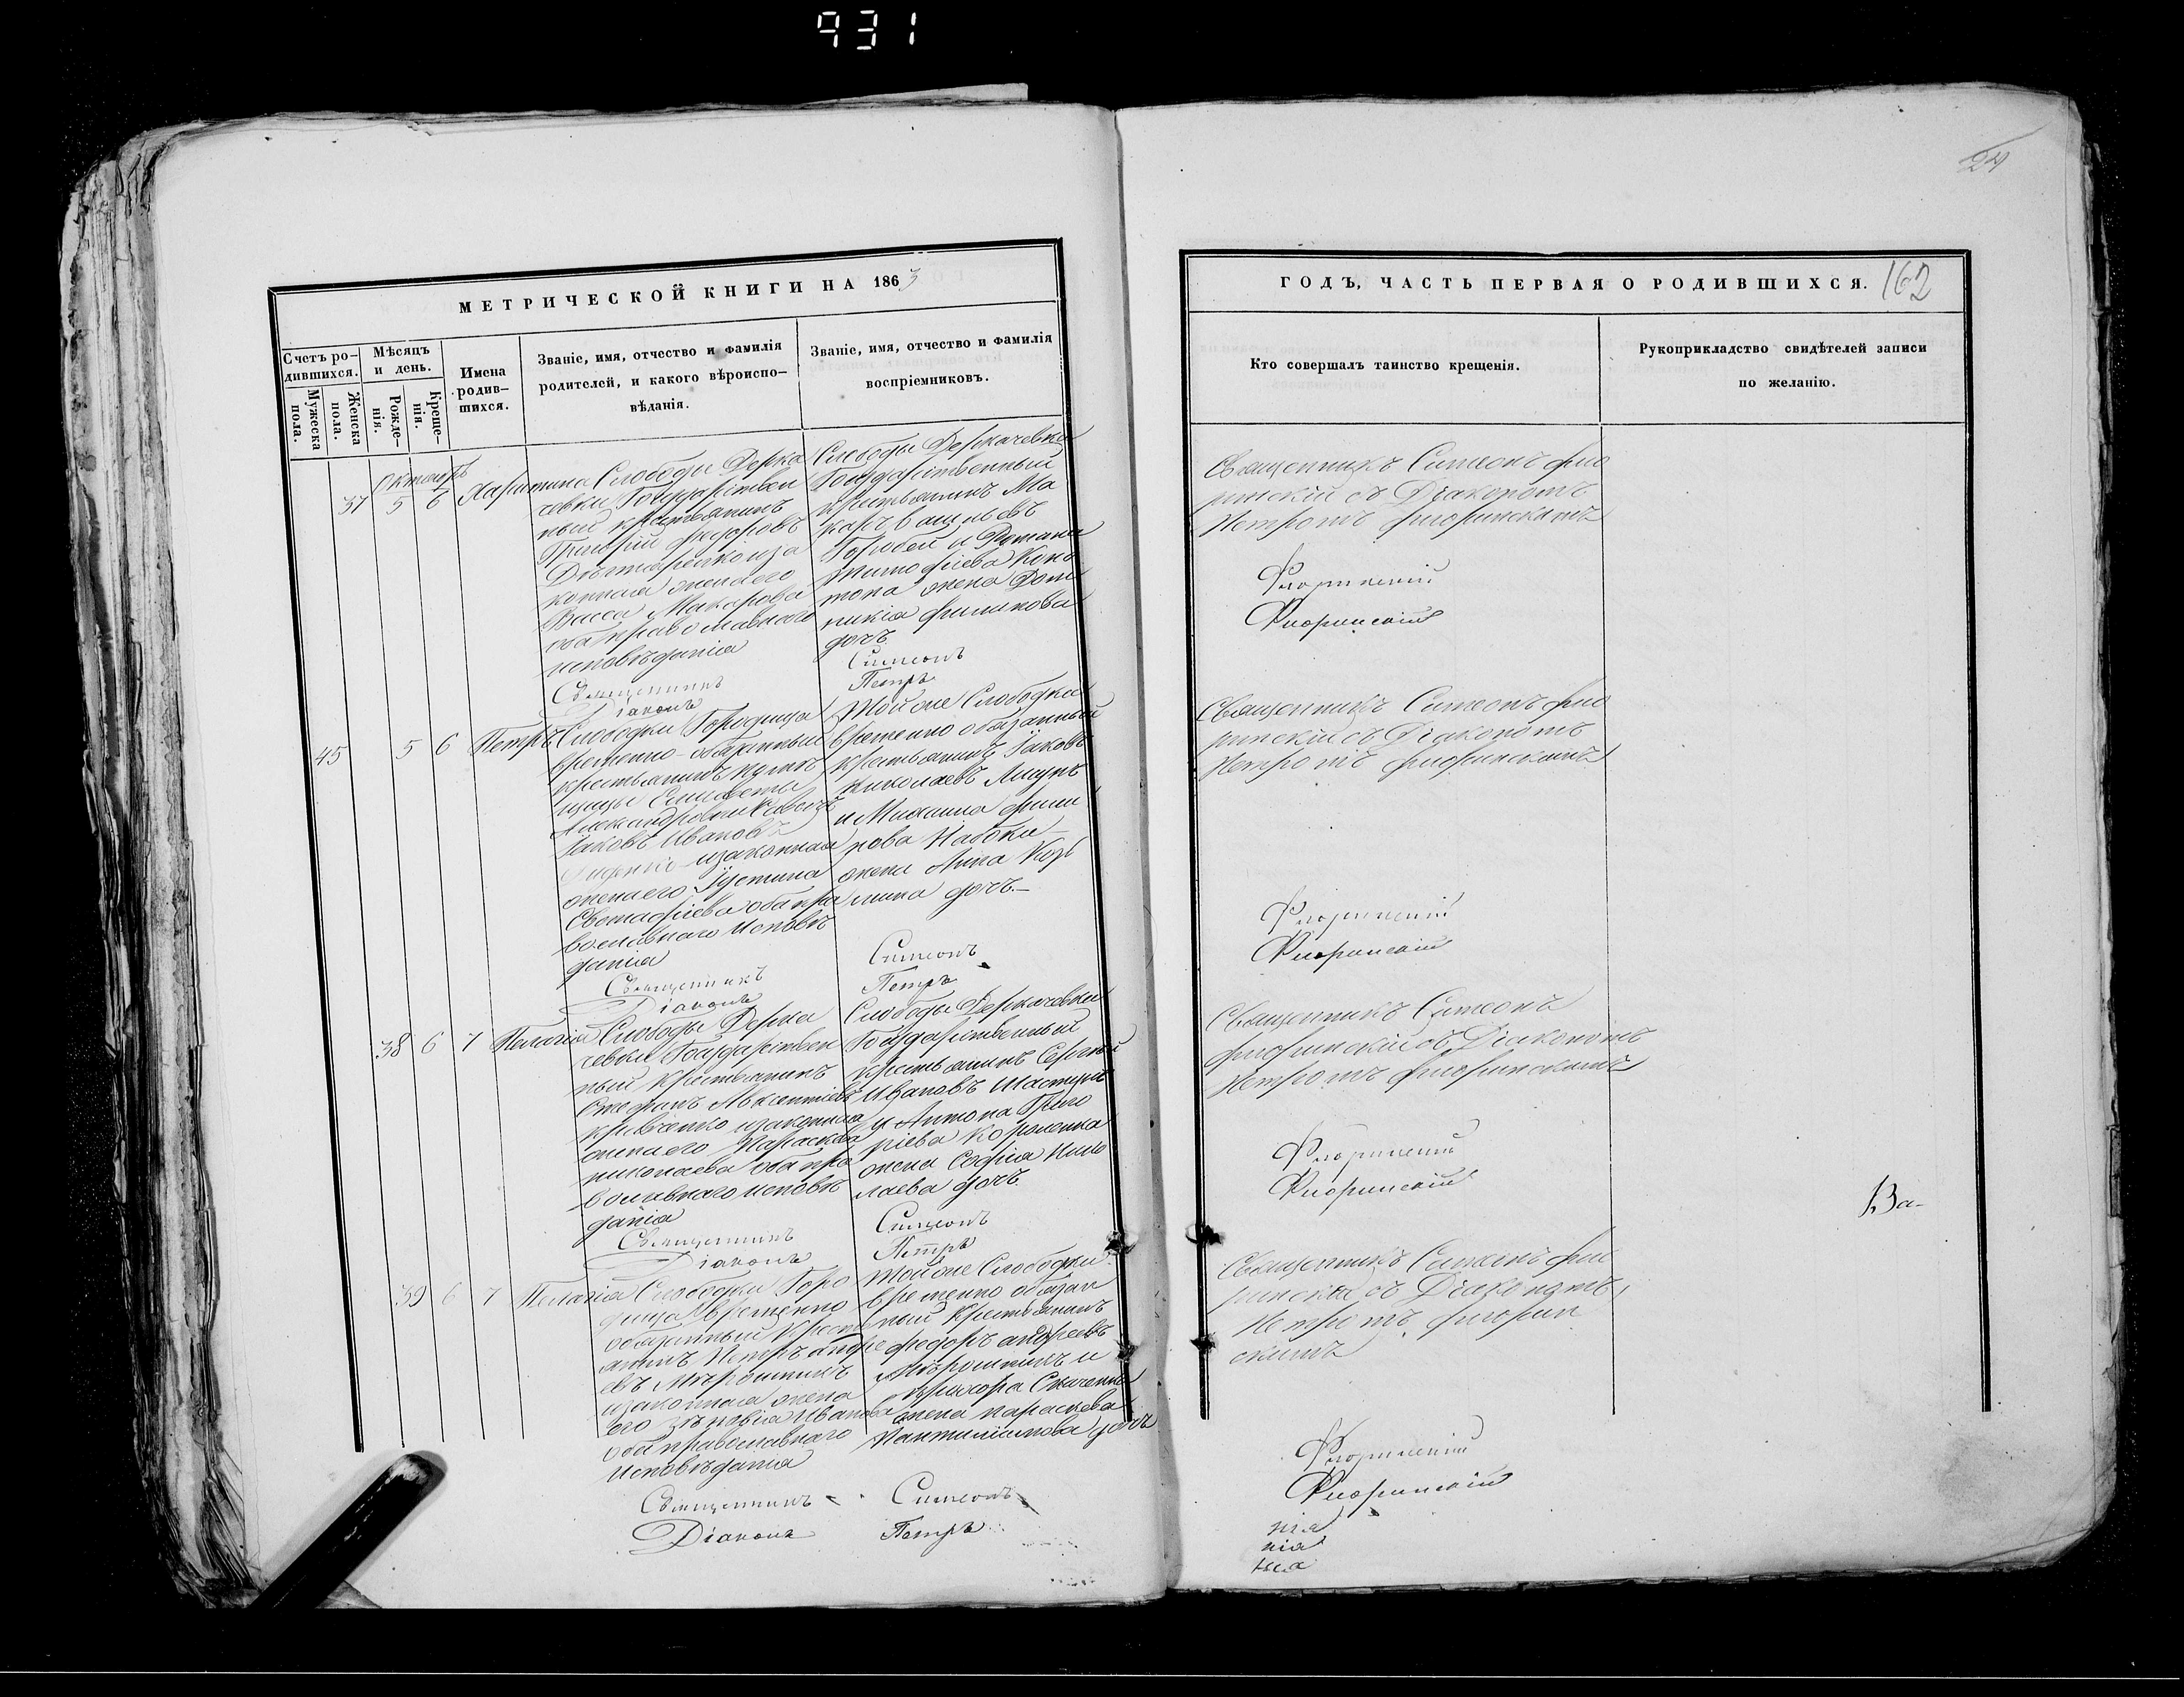 931
24
МЕТРИЧЕСКОЙ КНИГИ НА 1863
Счетъ ро-
дившихся.
Мужеска
пола.
Женска
пола.
Мѣсяцъ
и день.
Рожде-
нія.
Креще-
нія.
Имена
родив-
шихся.
Званіе, имя, отчество и фамилія
родителей, и какого вѣроиспо-
вѣданія.
Званіе, имя, отчество и фамилія
воспріемниковъ.
Октябрь
37 5 6 Харитина
Слободы Дерка
чевки Государствен
ный крестьянинъ
Григорій Федоровъ
иза
конная жена его
Васса Макарова
оба православнаго
исповѣданія
Священникъ
Діаконъ
Слободы Деркачевки
Государственный
крестьянинъ Ма
каръ Васильевъ
Горобей и Романа
Тимофіева
жена Дом
никія Филипова
дочь
Симеонъ
Петръ
45 5 6 Петръ
Слободки Городища
временно-обязанный
крестьянинъ
Елисаветы
Александровны
Іаковъ Ивановъ
изаконная
жена его Іустина
Евстафіева оба пра
вославнаго исповѣ
данія
Священникъ
Діаконъ
Той же Слободки
временно обязанный
крестьянинъ Іаковъ
Николаевъ Лисунъ
и Михаила Фили
пова Набоки
жена Анна Козь
мина дочь.-
Симеонъ
Петръ
38 6 7 Пелагія
Слободы Дерка
чевки Государствен
ный крестьянинъ
Стефанъ Авксентіевъ
Кривченко изаконная
жена его Параскева
Николаева оба пра
вославнаго исповѣ
данія
Священникъ
Діаконъ
Слободы Деркачевки
Государственный
крестьянинъ Сергѣй
Ивановъ Шастунъ
и Антона Григо
ріева
жена Софія Нико
лаева дочь
Симеонъ
Петръ
39 6 7 Пелагія
Слободки Горо
дища Временно
обязанный Кресть
янинъ Петръ Андре
евъ Мѣрошникъ
изаконная жена
его Зѣновія Иванова
оба православнаго
Исповѣданія
Священникъ
Діаконъ
Той же Слободки
временно обязан
ный Крестьянинъ
Федоръ Андреевъ
Мѣрошникъ и
жена Параскева
Пантилимонова дочь
Симеонъ
Петръ
ГОДЪ, ЧАСТЬ ПЕРВАЯ О РОДИВШИХСЯ. 162
Кто совершалъ таинство крещенія.
Рукоприкладство свидѣтелей записи
по желанію.
Священникъ Симеонъ Фио
ринскій съ Діакономъ
Петромъ Фиоринскимъ
Фиоринскій
Фиоринскій
Священникъ Симеонъ Фио
ринскій съ Діакономъ
Петромъ Фиоринскимъ
Фиоринскій
Фиоринскій
Священникъ Симеонъ
Фиоринскій съ Діакономъ
Петромъ Фиоринскимъ
Фиоринскій
Фиоринскій
Ва-
Священникъ Симеонъ Фио
ринскій съ Діакономъ
Петромъ Фиорин
скимъ
Фиоринскій
Фиоринскій
нія
нія